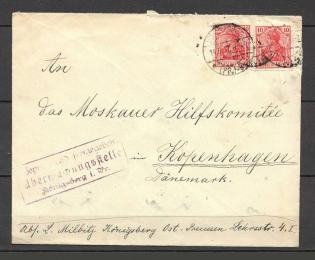 10
10
An
das Moskauer Hilfskomitée
in Kopenhagen
Dänemark.
Überwachungsstelle
Königsberg i. Pr.
Abs. L. Milbitz Königsberg Ost-Preussen